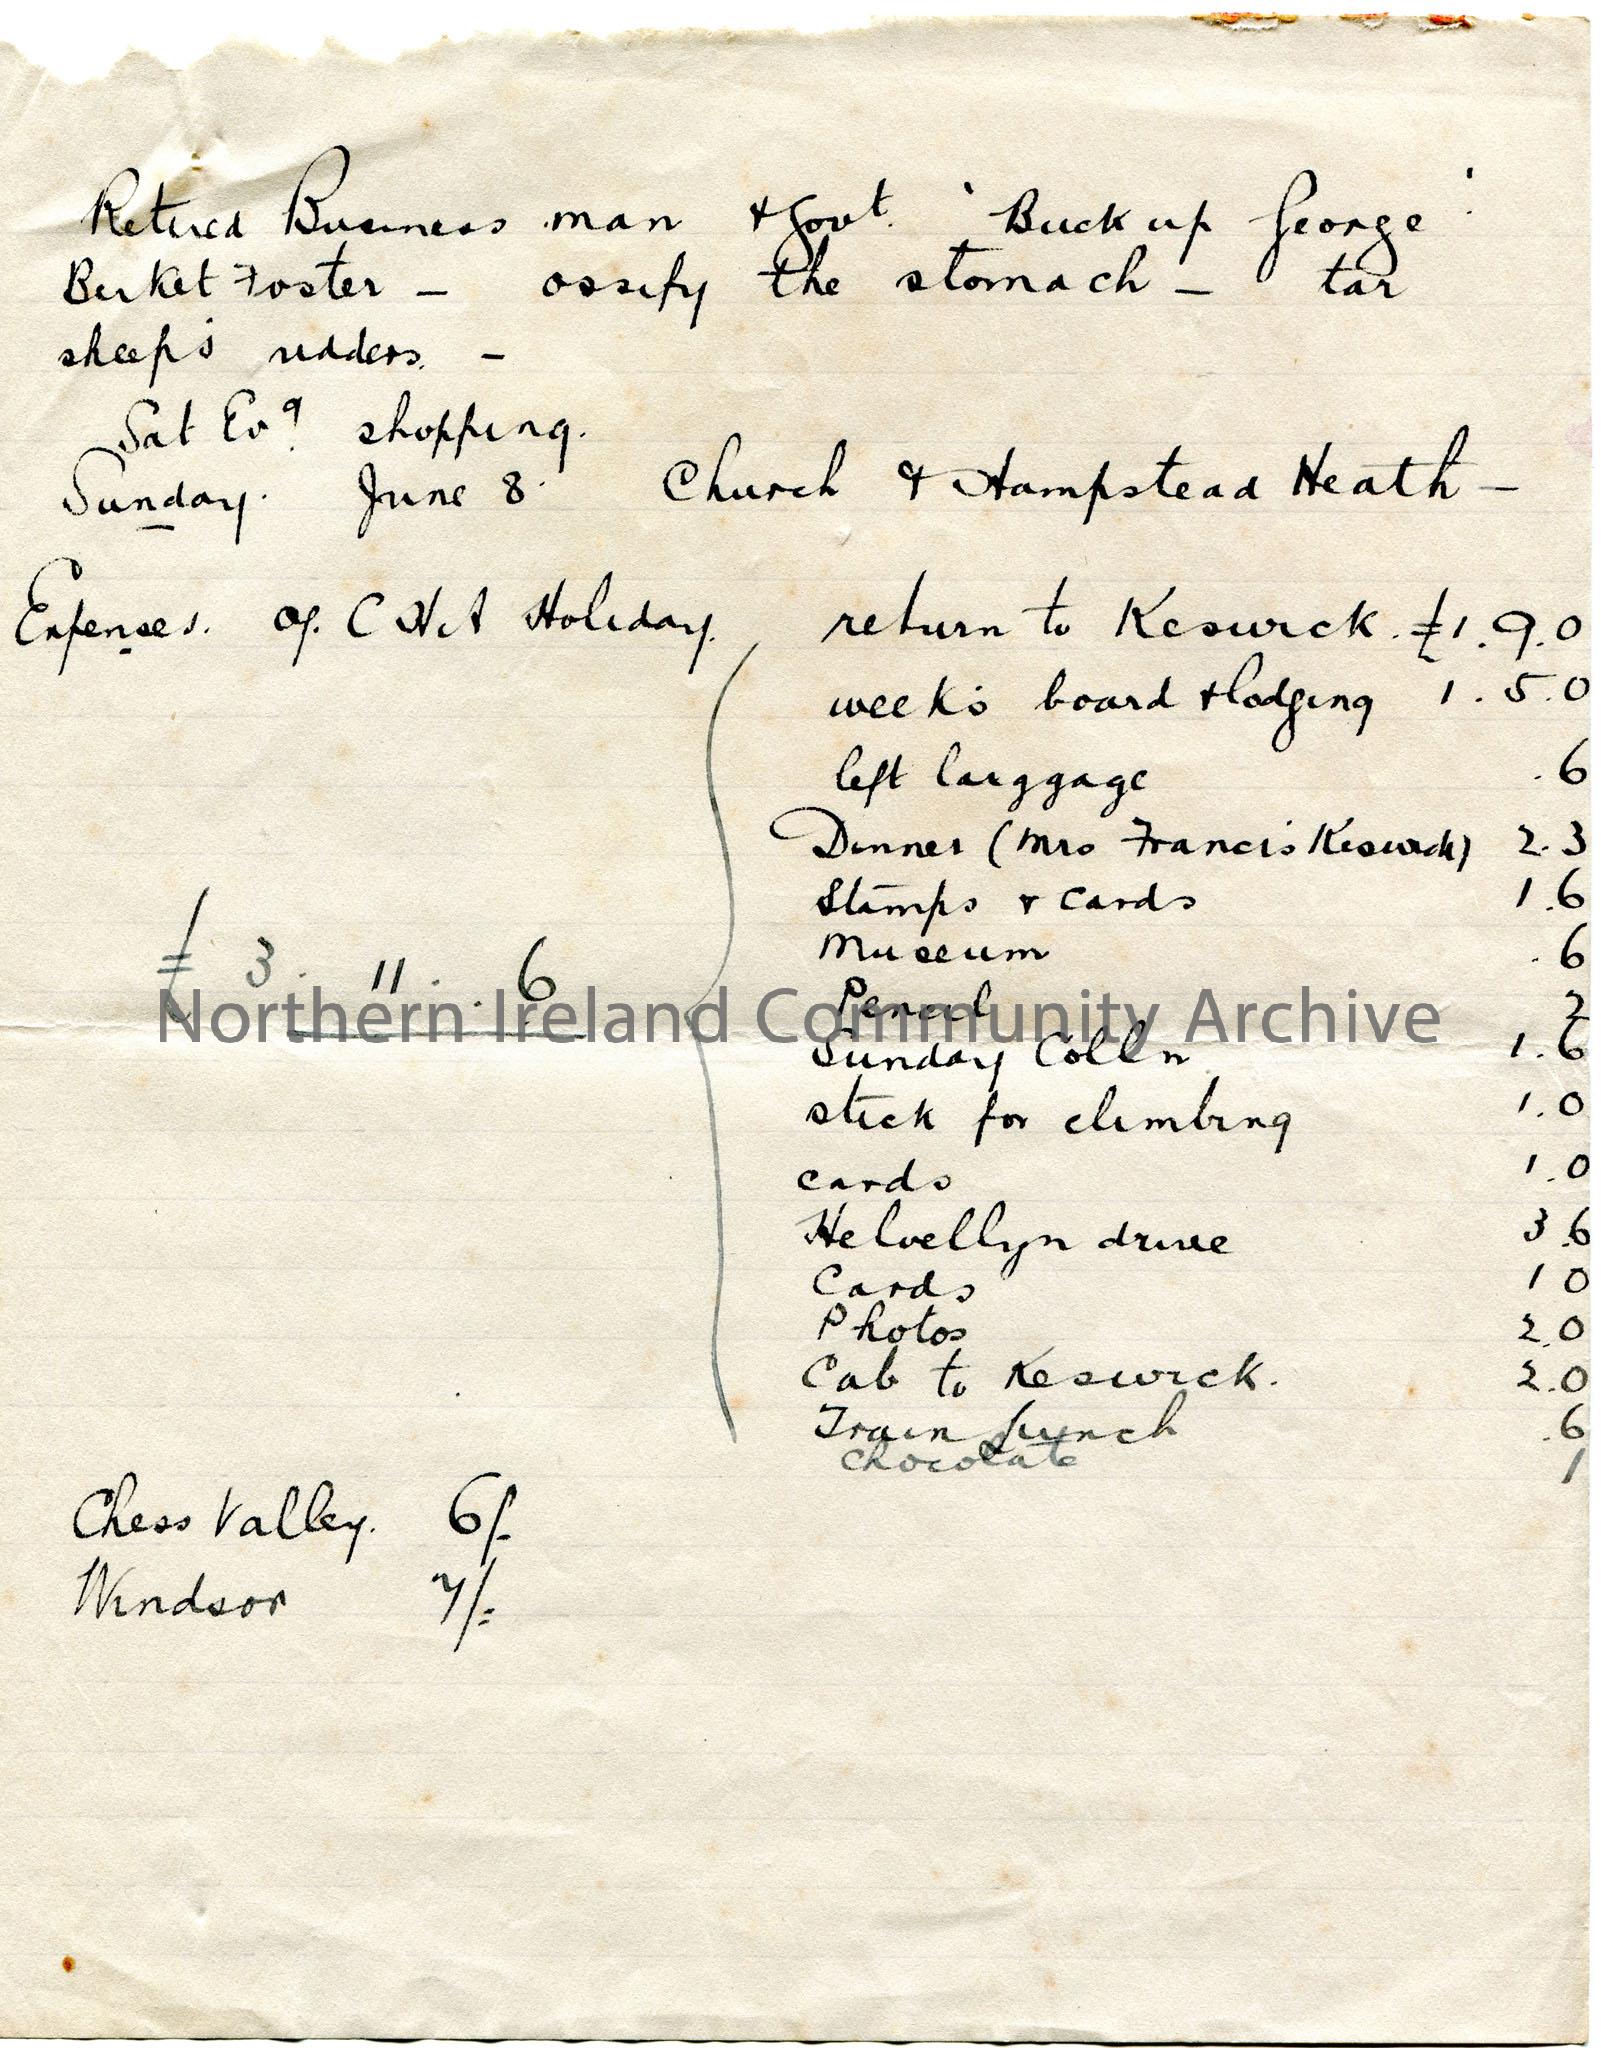 Retired Business man & Govt. 'Buck up George'.
Birket Foster – ossify the stomach – tar
sheep's udders. –
Sat Evg shopping.
Sunday. June 8. Church & Hampstead Heath –
Expenses. of. C H A Holiday. return to Keswick. £1.9.0
week's board & lodging 1.5.0
left larggage .6
Dinner (Mrs Francis Keswick) 2.3
Stamps & cards 1.6
Museum .6
£3.11.6
Pencil 2
Northern Ireland Community Archive
Sunday Coll'n 1.6
stick for climbing 1.0
cards 1.0
Helvellyn drive 3.6
Cards 1 0
Photos 2.0
Cab to Keswick. 2.0
Train Lunch .6
Chocolate 1
Chess Valley. 6/-
Windsor 7/-